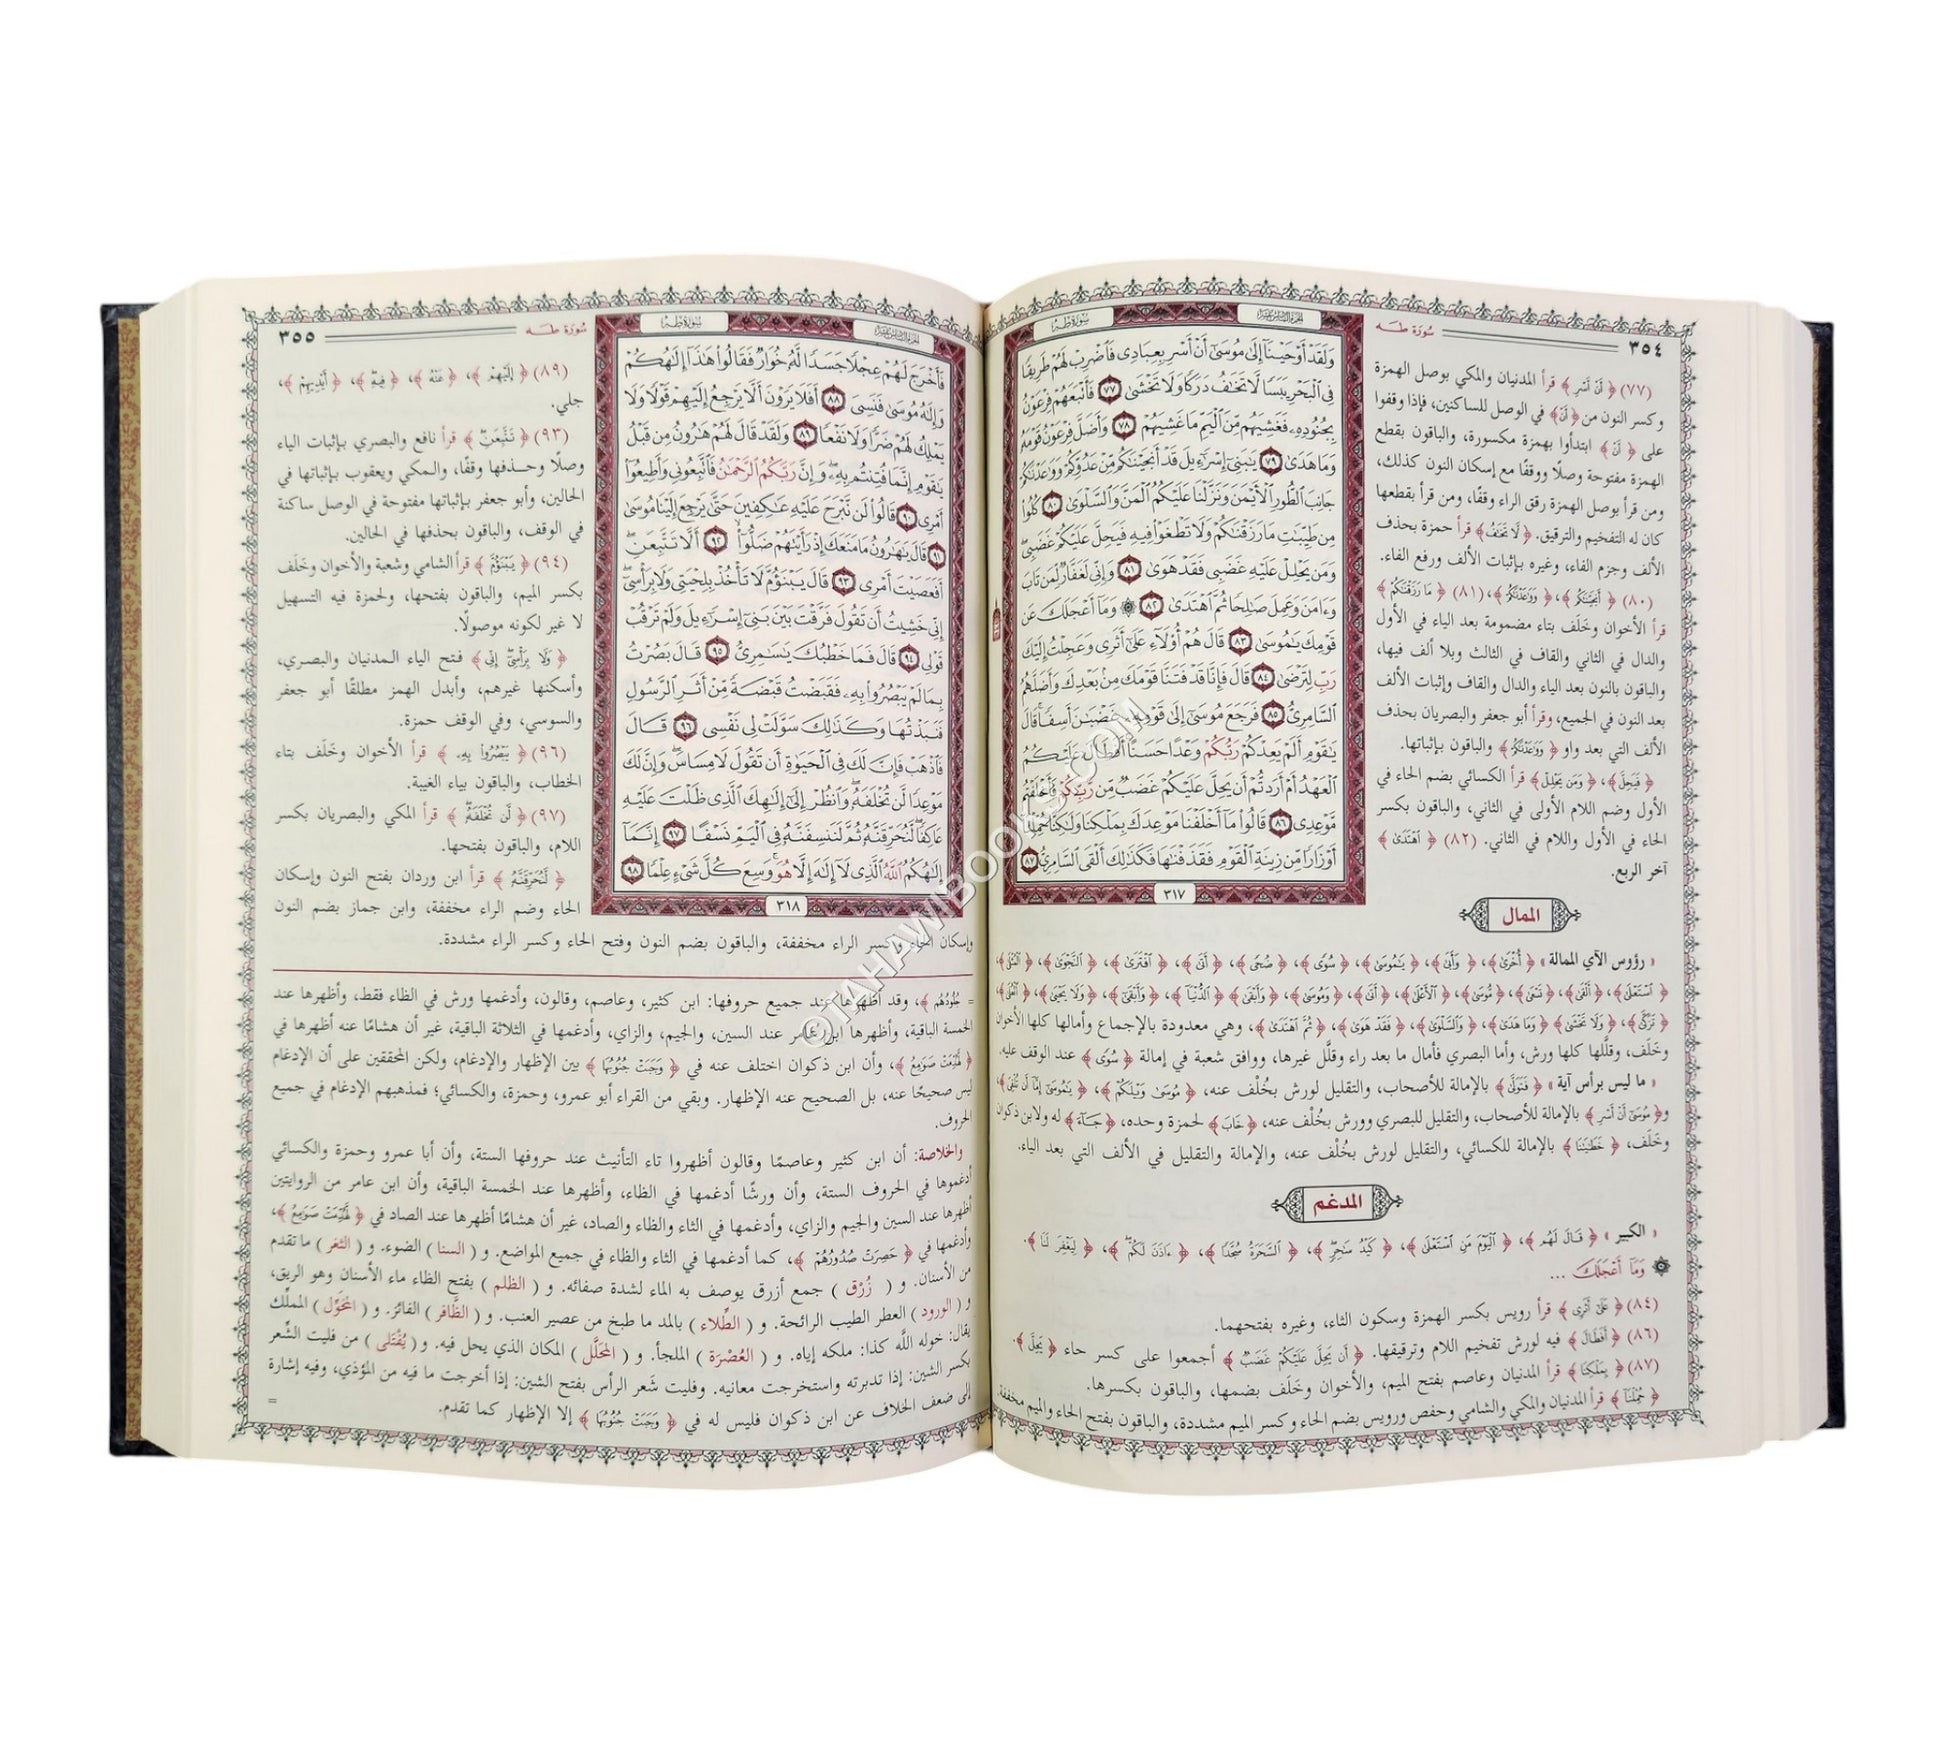 ٣٥٤
سُورَة طه
سورة طه
الجزء السادس عشر
وَلَقَدْ أَوْحَيْنَآ إِلَىٰ مُوسَىٰٓ أَنْ أَسْرِ بِعِبَادِى فَٱضْرِبْ لَهُمْ طَرِيقًا
فِى ٱلْبَحْرِ يَبَسًا لَّا تَخَٰفُ دَرَكًا وَلَا تَخْشَىٰ ٧٧ فَأَتْبَعَهُمْ فِرْعَوْنُ
بِجُنُودِهِۦ فَغَشِيَهُم مِّنَ ٱلْيَمِّ مَا غَشِيَهُمْ ٧٨ وَأَضَلَّ فِرْعَوْنُ قَوْمَهُۥ
وَمَا هَدَىٰ ٧٩ يَٰبَنِىٓ إِسْرَٰٓءِيلَ قَدْ أَنجَيْنَٰكُم مِّنْ عَدُوِّكُمْ وَوَٰعَدْنَٰكُمْ
جَانِبَ ٱلطُّورِ ٱلْأَيْمَنَ وَنَزَّلْنَا عَلَيْكُمُ ٱلْمَنَّ وَٱلسَّلْوَىٰ ٨٠ كُلُوا۟
مِن طَيِّبَٰتِ مَا رَزَقْنَٰكُمْ وَلَا تَطْغَوْا۟ فِيهِ فَيَحِلَّ عَلَيْكُمْ غَضَبِى ۖ
وَمَن يَحْلِلْ عَلَيْهِ غَضَبِى فَقَدْ هَوَىٰ ٨١ وَإِنِّى لَغَفَّارٌ لِّمَن تَابَ
وَءَامَنَ وَعَمِلَ صَٰلِحًا ثُمَّ ٱهْتَدَىٰ ٨٢ ۞ وَمَآ أَعْجَلَكَ عَن
قَوْمِكَ يَٰمُوسَىٰ ٨٣ قَالَ هُمْ أُو۟لَآءِ عَلَىٰٓ أَثَرِى وَعَجِلْتُ إِلَيْكَ
رَبِّ لِتَرْضَىٰ ٨٤ قَالَ فَإِنَّا قَدْ فَتَنَّا قَوْمَكَ مِنۢ بَعْدِكَ وَأَضَلَّهُمُ
ٱلسَّامِرِىُّ ٨٥ فَرَجَعَ مُوسَىٰٓ إِلَىٰ قَوْمِهِۦ غَضْبَٰنَ أَسِفًا ۚ قَالَ
يَٰقَوْمِ أَلَمْ يَعِدْكُمْ رَبُّكُمْ وَعْدًا حَسَنًا ۚ أَفَطَالَ عَلَيْكُمُ
ٱلْعَهْدُ أَمْ أَرَدتُّمْ أَن يَحِلَّ عَلَيْكُمْ غَضَبٌ مِّن رَّبِّكُمْ فَأَخْلَفْتُم
مَّوْعِدِى ٨٦ قَالُوا۟ مَآ أَخْلَفْنَا مَوْعِدَكَ بِمَلْكِنَا وَلَٰكِنَّا حُمِّلْنَآ
أَوْزَارًا مِّن زِينَةِ ٱلْقَوْمِ فَقَذَفْنَٰهَا فَكَذَٰلِكَ أَلْقَى ٱلسَّامِرِىُّ ٨٧
٣١٧
(٧٧) ﴿ أَنْ أَسْرِ ﴾ قرأ المدنيان والمكي بوصل الهمزة
وكسر النون من ﴿أَنْ﴾ في الوصل للساكنين، فإذا وقفوا
على ﴿ أَنْ ﴾ ابتدأوا بهمزة مكسورة، والباقون بقطع
الهمزة مفتوحة وصلًا ووقفًا مع إسكان النون كذلك،
ومن قرأ بوصل الهمزة رقق الراء وقفًا، ومن قرأ بقطعها
كان له التفخيم والترقيق. ﴿ لَا تَخَٰفُ ﴾ قرأ حمزة بحذف
الألف وجزم الفاء، وغيره بإثبات الألف ورفع الفاء.
(٨٠) ﴿ أَنجَيْنَٰكُم ﴾، ﴿ وَوَٰعَدْنَٰكُمْ ﴾، (٨١) ﴿ مَا رَزَقْنَٰكُمْ ﴾
قرأ الأخوان وخَلَف بتاء مضمومة بعد الياء في الأول
والدال في الثاني والقاف في الثالث وبلا ألف فيها،
والباقون بالنون بعد الياء والدال والقاف وإثبات الألف
بعد النون في الجميع، وقرأ أبو جعفر والبصريان بحذف
الألف التي بعد واو ﴿ وَوَٰعَدْنَٰكُمْ ﴾ والباقون بإثباتها.
﴿ فَيَحِلَّ ﴾، ﴿ وَمَن يَحْلِلْ ﴾ قرأ الكسائي بضم الحاء في
الأول وضم اللام الأولى في الثاني، والباقون بكسر
الحاء في الأول واللام في الثاني. (٨٢) ﴿ ٱهْتَدَىٰ ﴾
آخر الربع.
الممال
« رؤوس الآي الممالة » ﴿ أُخْرَىٰ ﴾، ﴿ وَأَبَىٰ ﴾، ﴿ يَٰمُوسَىٰ ﴾، ﴿ سُوًى ﴾، ﴿ ضُحًى ﴾، ﴿ أَتَىٰ ﴾، ﴿ ٱفْتَرَىٰ ﴾، ﴿ ٱلنَّجْوَىٰ ﴾، ﴿ ٱلْمُثْلَىٰ ﴾،
﴿ ٱسْتَعْلَىٰ ﴾، ﴿ أَلْقَىٰ ﴾، ﴿ تَسْعَىٰ ﴾، ﴿ مُّوسَىٰ ﴾، ﴿ ٱلْأَعْلَىٰ ﴾، ﴿ أَتَىٰ ﴾، ﴿ وَمُوسَىٰ ﴾، ﴿ وَأَبْقَىٰ ﴾، ﴿ ٱلدُّنْيَآ ﴾، ﴿ وَأَبْقَىٰٓ ﴾، ﴿ وَلَا يَحْيَىٰ ﴾، ﴿ ٱلْعُلَىٰ ﴾،
﴿ تَزَكَّىٰ ﴾، ﴿ وَلَا تَخْشَىٰ ﴾ ﴿ وَمَا هَدَىٰ ﴾، ﴿ وَٱلسَّلْوَىٰ ﴾، ﴿ فَقَدْ هَوَىٰ ﴾، ﴿ ثُمَّ ٱهْتَدَىٰ ﴾، وهي معدودة بالإجماع وأمالها كلها الأخوان
وخَلَف، وقلَّلها كلها ورش، وأما البصري فأمال ما بعد راء وقلَّل غيرها، ووافق شعبة في إمالة ﴿ سُوًى ﴾ عند الوقف عليه.
« ما ليس برأس آية » ﴿ فَتَوَلَّىٰ ﴾ بالإمالة للأصحاب، والتقليل لورش بخُلْف عنه، ﴿ مُوسَىٰ وَيْلَكُمْ ﴾، ﴿ يَٰمُوسَىٰٓ إِمَّآ أَن تُلْقِىَ ﴾،
و﴿ مُوسَىٰٓ أَنْ أَسْرِ ﴾ بالإمالة للأصحاب، والتقليل للبصري وورش بخُلْف عنه، ﴿ خَابَ ﴾ لحمزة وحده، ﴿ جَآءَ ﴾ له ولابن ذكوان
وخَلَف، ﴿ خَطَٰيَٰنَا ﴾ بالإمالة للكسائي، والتقليل لورش بخُلْف عنه، والإمالة والتقليل في الألف التي بعد الياء.
المدغم
« الكبير » ﴿ قَالَ لَهُم ﴾، ﴿ ٱلْيَوْمَ مَنِ ٱسْتَعْلَىٰ ﴾، ﴿ كَيْدُ سَٰحِرٍ ﴾، ﴿ ٱلسَّحَرَةُ سُجَّدًا ﴾، ﴿ ءَاذَنَ لَكُمْ ﴾، ﴿ لِيَغْفِرَ لَنَا ﴾.
۞ وَمَآ أَعْجَلَكَ ...
(٨٤) ﴿ عَلَىٰٓ أَثَرِى ﴾ قرأ رويس بكسر الهمزة وسكون الثاء، وغيره بفتحهما.
(٨٦) ﴿ أَفَطَالَ ﴾ فيه لورش تفخيم اللام وترقيقها. ﴿ أَن يَحِلَّ عَلَيْكُمْ غَضَبٌ ﴾ أجمعوا على كسر حاء ﴿ يَحِلَّ ﴾.
(٨٧) ﴿ بِمَلْكِنَا ﴾ قرأ المدنيان وعاصم بفتح الميم، والأخوان وخَلَف بضمها، والباقون بكسرها.
﴿ حُمِّلْنَآ ﴾ قرأ المدنيان والمكي والشامي وحفص ورويس بضم الحاء وكسر الميم مشددة، والباقون بفتح الحاء والميم مخففة.
٣٥٥
سُورَة طه
سورة طه
الجزء السادس عشر
فَأَخْرَجَ لَهُمْ عِجْلًا جَسَدًا لَّهُۥ خُوَارٌ فَقَالُوا۟ هَٰذَآ إِلَٰهُكُمْ
وَإِلَٰهُ مُوسَىٰ فَنَسِىَ ٨٨ أَفَلَا يَرَوْنَ أَلَّا يَرْجِعُ إِلَيْهِمْ قَوْلًا وَلَا
يَمْلِكُ لَهُمْ ضَرًّا وَلَا نَفْعًا ٨٩ وَلَقَدْ قَالَ لَهُمْ هَٰرُونُ مِن قَبْلُ
يَٰقَوْمِ إِنَّمَا فُتِنتُم بِهِۦ ۖ وَإِنَّ رَبَّكُمُ ٱلرَّحْمَٰنُ فَٱتَّبِعُونِى وَأَطِيعُوٓا۟
أَمْرِى ٩٠ قَالُوا۟ لَن نَّبْرَحَ عَلَيْهِ عَٰكِفِينَ حَتَّىٰ يَرْجِعَ إِلَيْنَا مُوسَىٰ
٩١ قَالَ يَٰهَٰرُونُ مَا مَنَعَكَ إِذْ رَأَيْتَهُمْ ضَلُّوٓا۟ ٩٢ أَلَّا تَتَّبِعَنِ ۖ
أَفَعَصَيْتَ أَمْرِى ٩٣ قَالَ يَبْنَؤُمَّ لَا تَأْخُذْ بِلِحْيَتِى وَلَا بِرَأْسِىٓ ۖ
إِنِّى خَشِيتُ أَن تَقُولَ فَرَّقْتَ بَيْنَ بَنِىٓ إِسْرَٰٓءِيلَ وَلَمْ تَرْقُبْ
قَوْلِى ٩٤ قَالَ فَمَا خَطْبُكَ يَٰسَٰمِرِىُّ ٩٥ قَالَ بَصُرْتُ
بِمَا لَمْ يَبْصُرُوا۟ بِهِۦ فَقَبَضْتُ قَبْضَةً مِّنْ أَثَرِ ٱلرَّسُولِ
فَنَبَذْتُهَا وَكَذَٰلِكَ سَوَّلَتْ لِى نَفْسِى ٩٦ قَالَ
فَٱذْهَبْ فَإِنَّ لَكَ فِى ٱلْحَيَوٰةِ أَن تَقُولَ لَا مِسَاسَ ۖ وَإِنَّ لَكَ
مَوْعِدًا لَّن تُخْلَفَهُۥ ۖ وَٱنظُرْ إِلَىٰٓ إِلَٰهِكَ ٱلَّذِى ظَلْتَ عَلَيْهِ
عَاكِفًا ۖ لَّنُحَرِّقَنَّهُۥ ثُمَّ لَنَنسِفَنَّهُۥ فِى ٱلْيَمِّ نَسْفًا ٩٧ إِنَّمَآ
إِلَٰهُكُمُ ٱللَّهُ ٱلَّذِى لَآ إِلَٰهَ إِلَّا هُوَ ۚ وَسِعَ كُلَّ شَىْءٍ عِلْمًا ٩٨
٣١٨
(٨٩) ﴿ إِلَيْهِمْ ﴾، ﴿ عَنْهُ ﴾، ﴿ فِيهِ ﴾، ﴿ أَيْدِيهِمْ ﴾،
جلي.
(٩٣) ﴿ تَتَّبِعَنِ ﴾ قرأ نافع والبصري بإثبات الياء
وصلًا وحذفها وقفًا، والمكي ويعقوب بإثباتها في
الحالين، وأبو جعفر بإثباتها مفتوحة في الوصل ساكنة
في الوقف، والباقون بحذفها في الحالين.
(٩٤) ﴿ يَبْنَؤُمَّ ﴾ قرأ الشامي وشعبة والأخوان وخَلَف
بكسر الميم، والباقون بفتحها، ولحمزة فيه التسهيل
لا غير لكونه موصولًا.
﴿ وَلَا بِرَأْسِىٓ إِنِّى ﴾ فتح الياء المدنيان والبصري،
وأسكنها غيرهم، وأبدل الهمز مطلقًا أبو جعفر
والسوسي، وفي الوقف حمزة.
(٩٦) ﴿ يَبْصُرُوا۟ بِهِۦ ﴾ قرأ الأخوان وخَلَف بتاء
الخطاب، والباقون بياء الغيبة.
(٩٧) ﴿ لَّن تُخْلَفَهُۥ ﴾ قرأ المكي والبصريان بكسر
اللام، والباقون بفتحها.
﴿ لَّنُحَرِّقَنَّهُۥ ﴾ قرأ ابن وردان بفتح النون وإسكان
الحاء وضم الراء مخففة، وابن جماز بضم النون
وإسكان الحاء وكسر الراء مخففة، والباقون بضم النون وفتح الحاء وكسر الراء مشددة.
= ﴿ جُلُودُهُم ﴾، وقد أظهرها عند جميع حروفها: ابن كثير، وعاصم، وقالون، وأدغمها ورش في الظاء فقط، وأظهرها عند
الخمسة الباقية، وأظهرها ابن عامر عند السين، والجيم، والزاي، وأدغمها في الثلاثة الباقية، غير أن هشامًا عنه أظهرها في
﴿ لَّهُدِّمَتْ صَوَٰمِعُ ﴾، وأن ابن ذكوان اختلف عنه في ﴿ وَجَبَتْ جُنُوبُهَا ﴾ بين الإظهار والإدغام، ولكن المحققين على أن الإدغام
ليس صحيحًا عنه، بل الصحيح عنه الإظهار. وبقي من القراء أبو عمرو، وحمزة، والكسائي؛ فمذهبهم الإدغام في جميع
الحروف.
والخلاصة: أن ابن كثير وعاصمًا وقالون أظهروا تاء التأنيث عند حروفها الستة، وأن أبا عمرو وحمزة والكسائي
أدغموها في الحروف الستة، وأن ورشًا أدغمها في الظاء، وأظهرها عند الخمسة الباقية، وأن ابن عامر من الروايتين
أظهرها عند السين والجيم والزاي، وأدغمها في الثاء والظاء والصاد، غير أن هشامًا أظهرها عند الصاد في ﴿ لَّهُدِّمَتْ صَوَٰمِعُ ﴾،
وأدغمها في ﴿ حَصِرَتْ صُدُورُهُمْ ﴾، كما أدغمها في الثاء والظاء في جميع المواضع. و ( السنا ) الضوء. و ( الثغر ) ما تقدم
من الأسنان. و ( زُرْق ) جمع أزرق يوصف به الماء لشدة صفائه. و ( الظلم ) بفتح الظاء ماء الأسنان وهو الريق،
و ( الورود ) العطر الطيب الرائحة. و ( الطِّلاء ) بالمد ما طبخ من عصير العنب. و ( الظَّافر ) الفائز. و ( المخَوَّل ) المملَّك
يقال: خوله اللَّه كذا: ملكه إياه. و ( العُصْرَة ) الملجأ. و ( المحَلَّل ) المكان الذي يحل فيه. و ( يُفْتَلى ) من فليت الشَّعر
بكسر الشين: إذا تدبرته واستخرجت معانيه. وفليت شَعر الرأس بفتح الشين: إذا أخرجت ما فيه من المؤذي، وفيه إشارة
إلى ضعف الخلاف عن ابن ذكوان فليس له في ﴿ وَجَبَتْ جُنُوبُهَا ﴾ إلا الإظهار كما تقدم. =
©TAHAWIBOOKS.COM